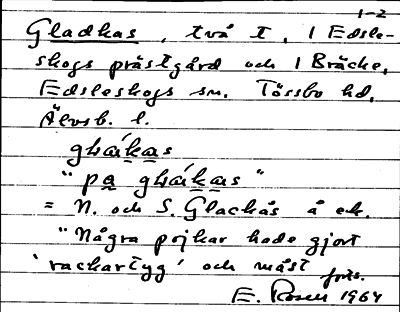 1-2
Gladkas, två t, 1 Edsle-
skogs prästgård och 1 Bräcke,
Edsleskogs sn. Tössbo hd,
Älvsb. l.
"på
= N. och S. Glackås å ek.
"Några pojkar hade gjort
'rackartyg' och måst
forts.
E. Rosell 1964